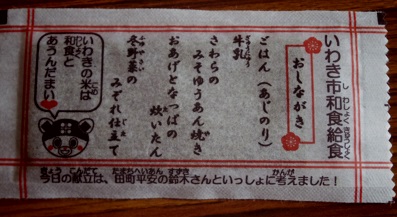 いわき市和食給食
おしながき
ごはん(あじのり)
牛乳
さわらの
みそゆうあん焼き
おあげとなっぱの
炊いたん
冬野菜の
みぞれ仕立て
いわきの米は
和食と
あうんだまい
今日の献立は、田町平安の鈴木さんといっしょに考えました!